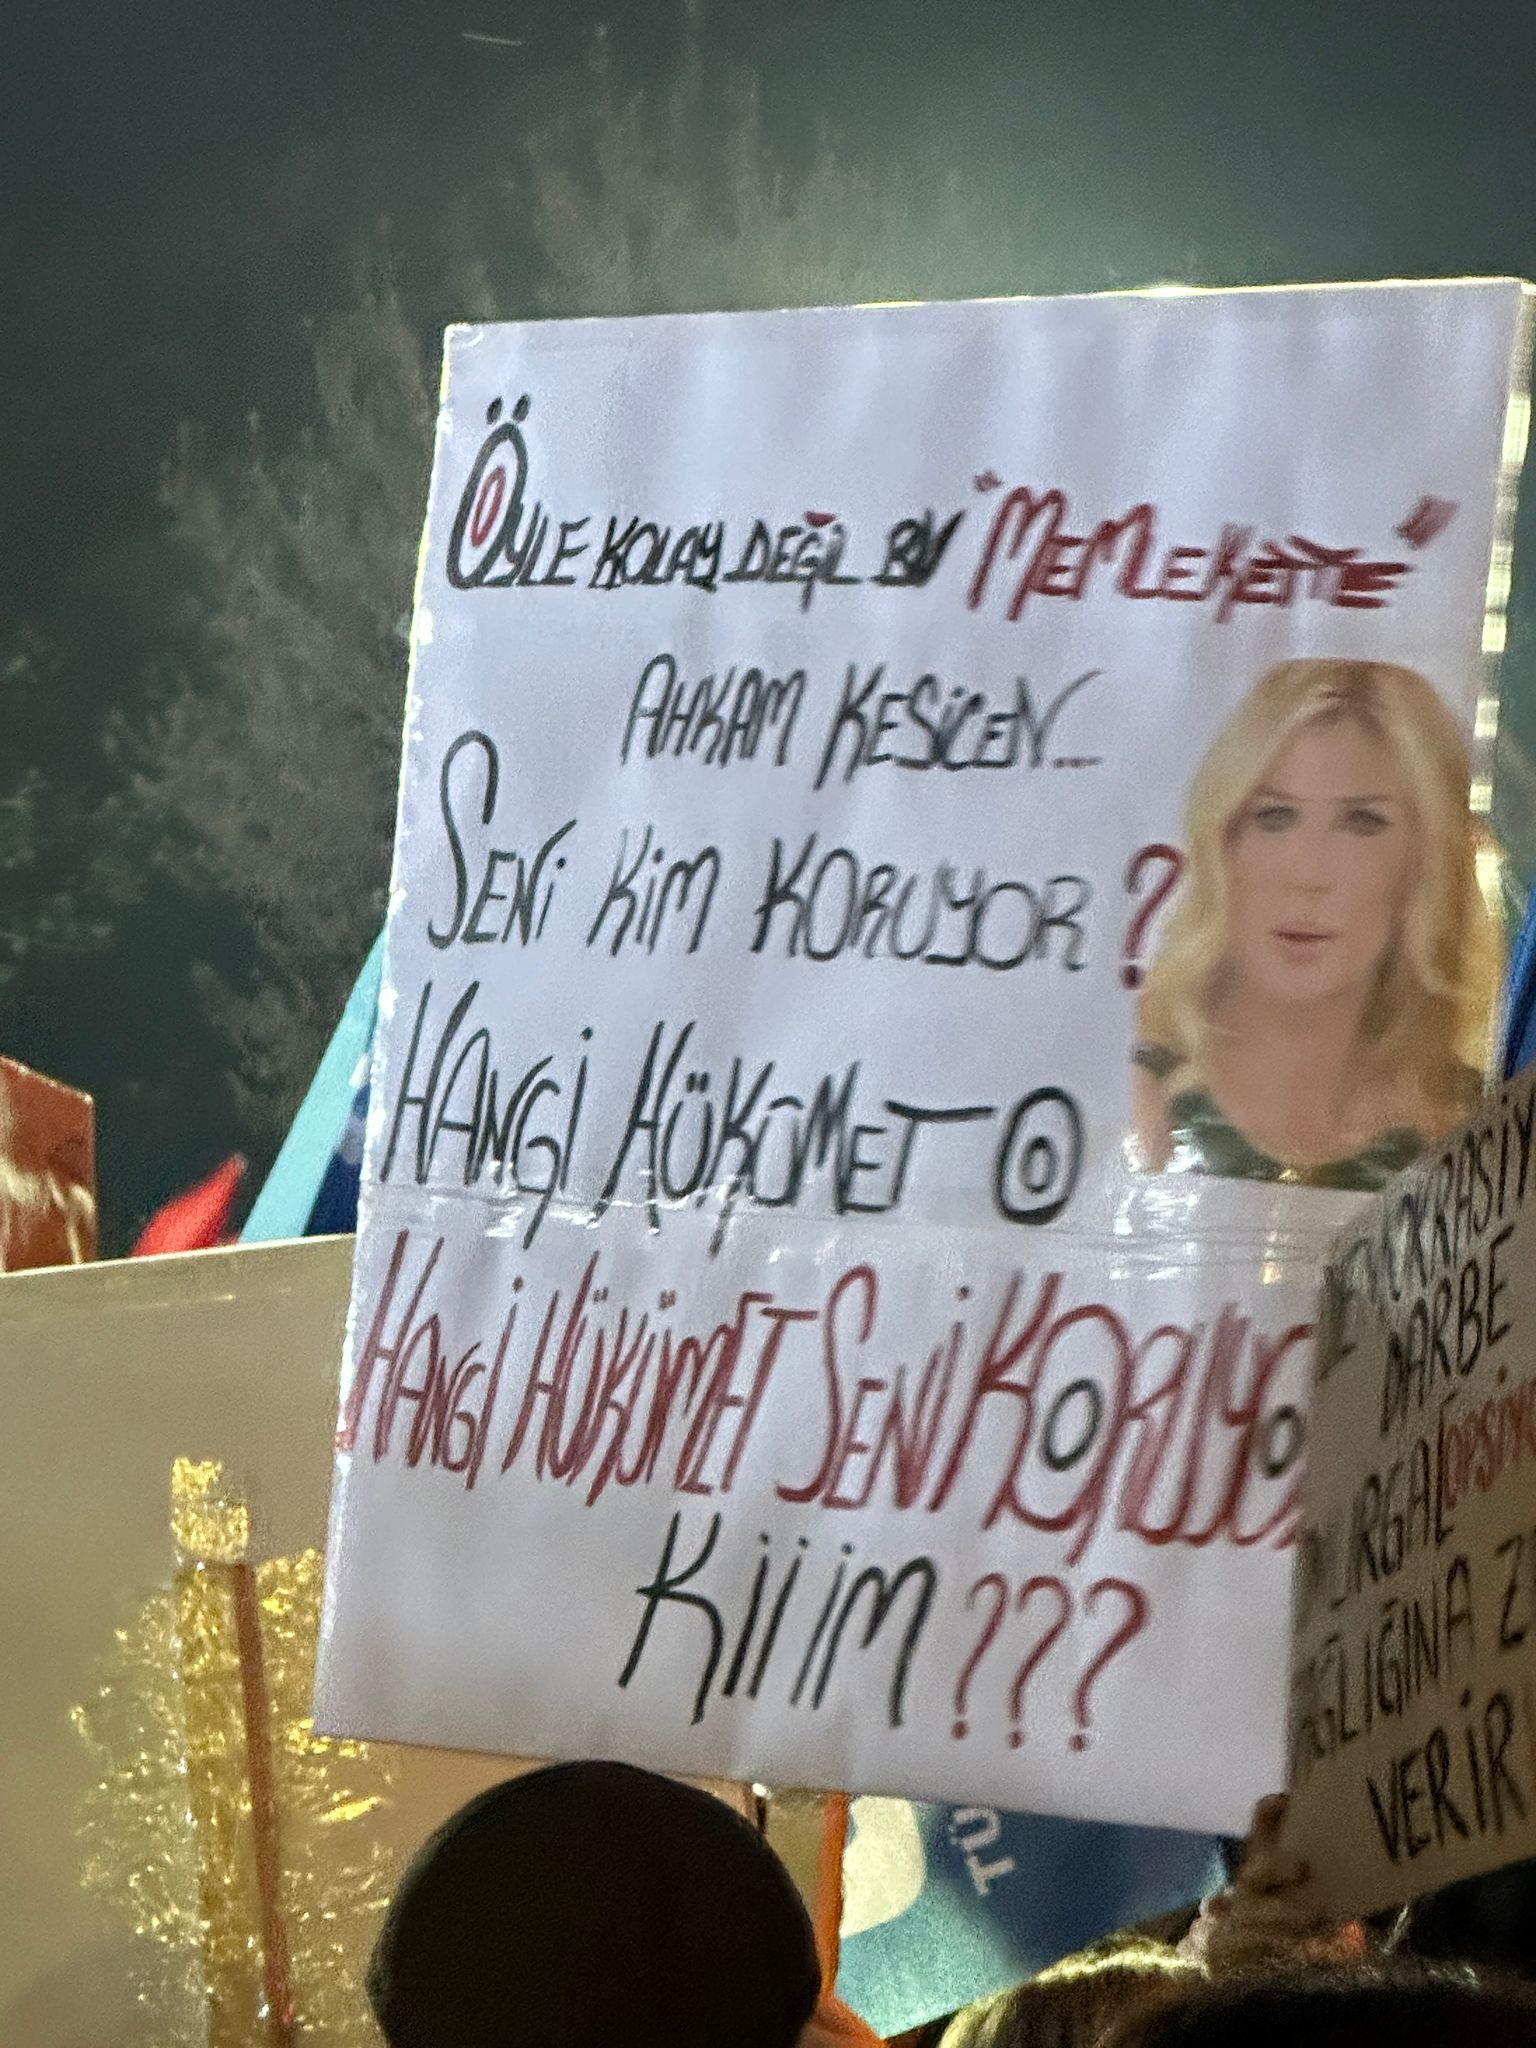 ÖYLE KOLAY DEĞİL BU "MEMLEKETTE"
AHKAM KESİCEN...
SENİ KİM KORUYOR?
HANGİ HÜKÜMET O
HANGİ HÜKÜMET SENİ KORUYO
KİİİM???
DARBE
VERİR
TÜ